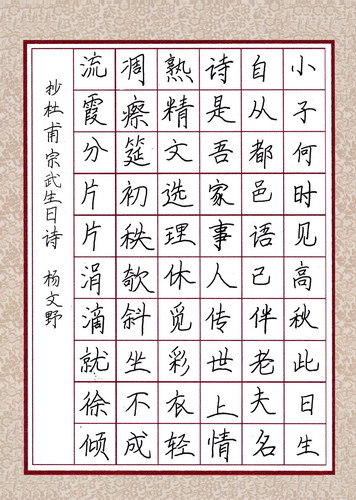 小子何时见高秋此日生
自从都邑语已伴老夫名
诗是吾家事人传世上情
熟精文选理休觅彩衣轻
凋瘵筵初秩欹斜坐不成
流霞分片片涓滴就徐倾
抄杜甫宗武生日诗 杨文野